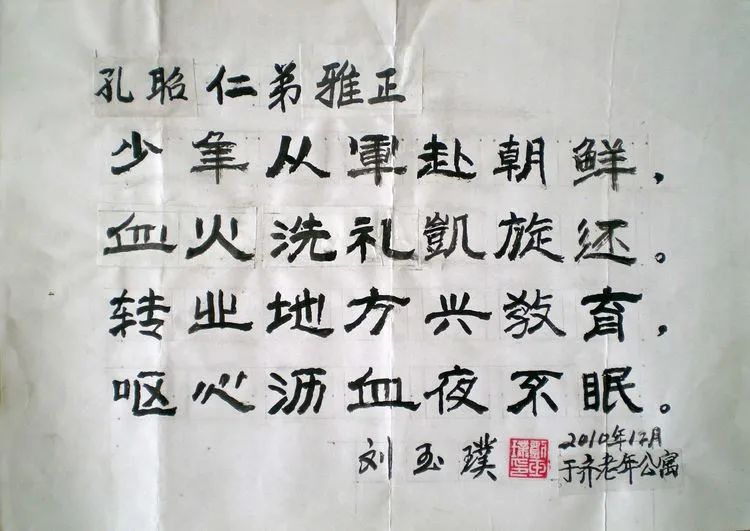 孔昭仁弟雅正
少年从軍赴朝鮮，
血火洗礼凱旋还。
转业地方兴教育，
呕心沥血夜不眠。
刘玉璞
2010年12月
于齐老年公寓